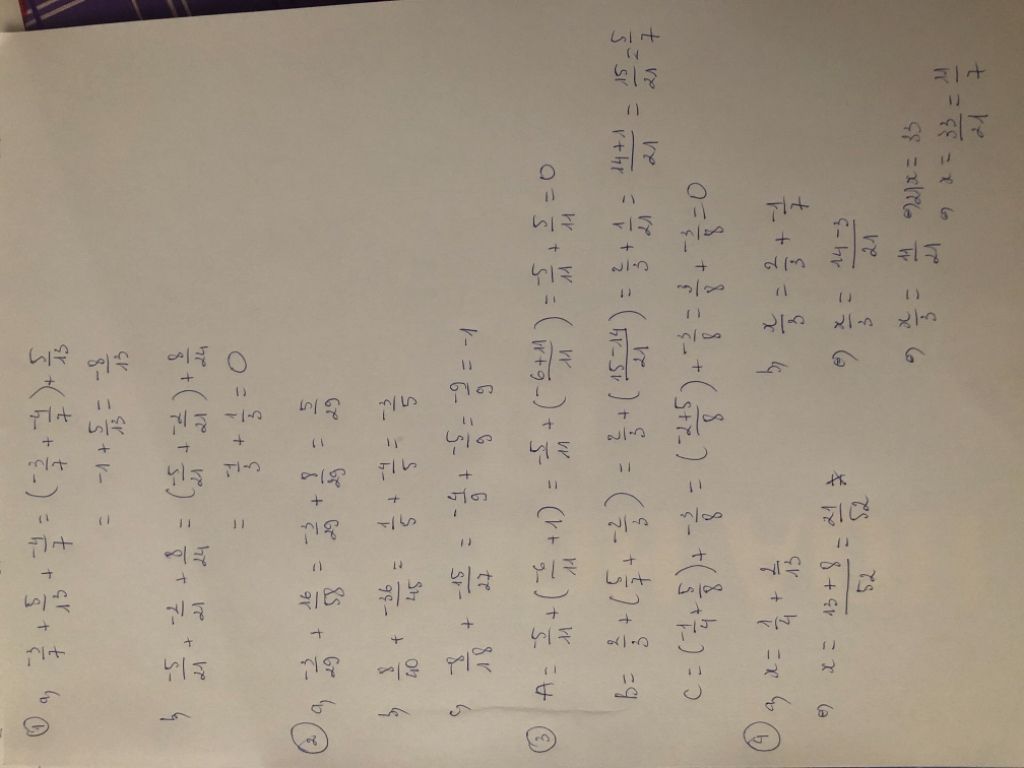 ① a, -3/7 + 5/13 + -4/7 = (-3/7 + -4/7) + 5/13
= -1 + 5/13 = -8/13
b, -5/21 + -2/21 + 8/24 = (-5/21 + -2/21) + 8/24
= -1/3 + 1/3 = 0
② a, -3/29 + 16/58 = -3/29 + 8/29 = 5/29
b, 8/40 + -36/45 = 1/5 + -4/5 = -3/5
c, -8/18 + -15/27 = -4/9 + -5/9 = -9/9 = -1
③ A = -5/11 + (-6/11 + 1) = -5/11 + (-6+11/11) = -5/11 + 5/11 = 0
B = 2/3 + (5/7 + -2/3) = 2/3 + (15-14/21) = 2/3 + 1/21 = 14+1/21 = 15/21 = 5/7
C = (-1/4 + 5/8) + -3/8 = (-2+5/8) + -3/8 = 3/8 + -3/8 = 0
④ a, x = 1/4 + 2/13
x = 13+8/52 = 21/52
b, x/3 = 2/3 + -1/7
x/3 = 14-3/21
x/3 = 11/21 21x = 33
x = 33/21 = 11/7